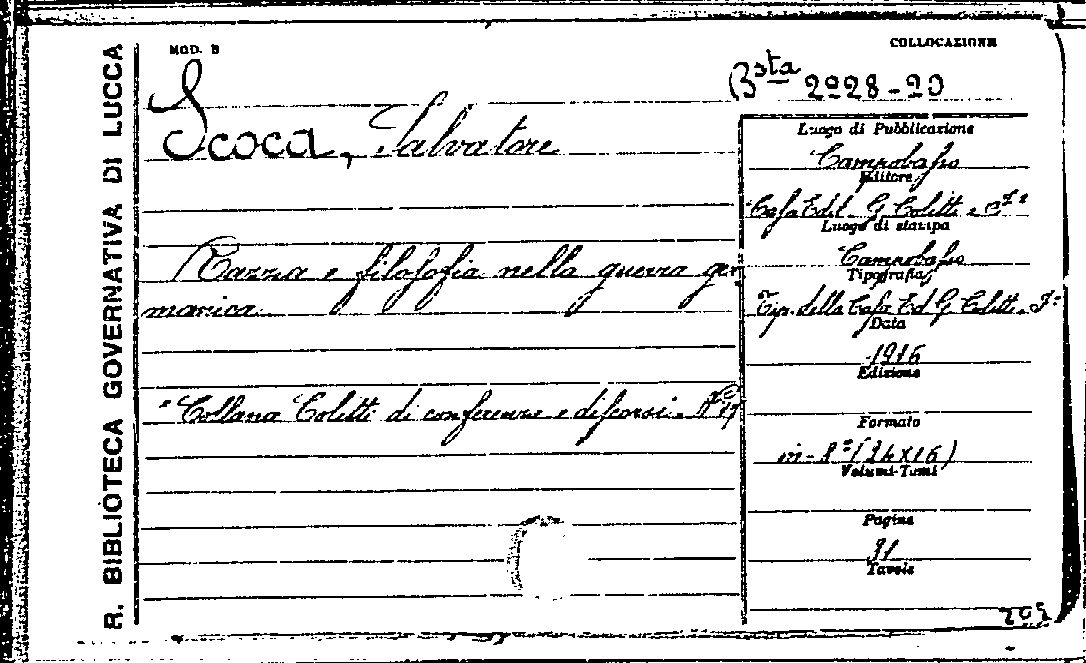 R. BIBLIOTECA GOVERNATIVA DI LUCCA
MOD. B
COLLOCAZIONE
Bsta 2928-20
Scoca, Salvatore
Razza e filosofia nella guerra ger
manica
"Collana Colitti di conferenze e discorsi. N°
Luogo di Pubblicazione
Campobasso
Editore
Casa Edit. G. Colitti e
Luogo di stampa
Campobasso
Tipografia
Tip. della Casa Ed. G. Colitti e
Data
1916
Edizione
Formato
in-8° (24x16)
Volumi-Tomi
Pagine
31
Tavole